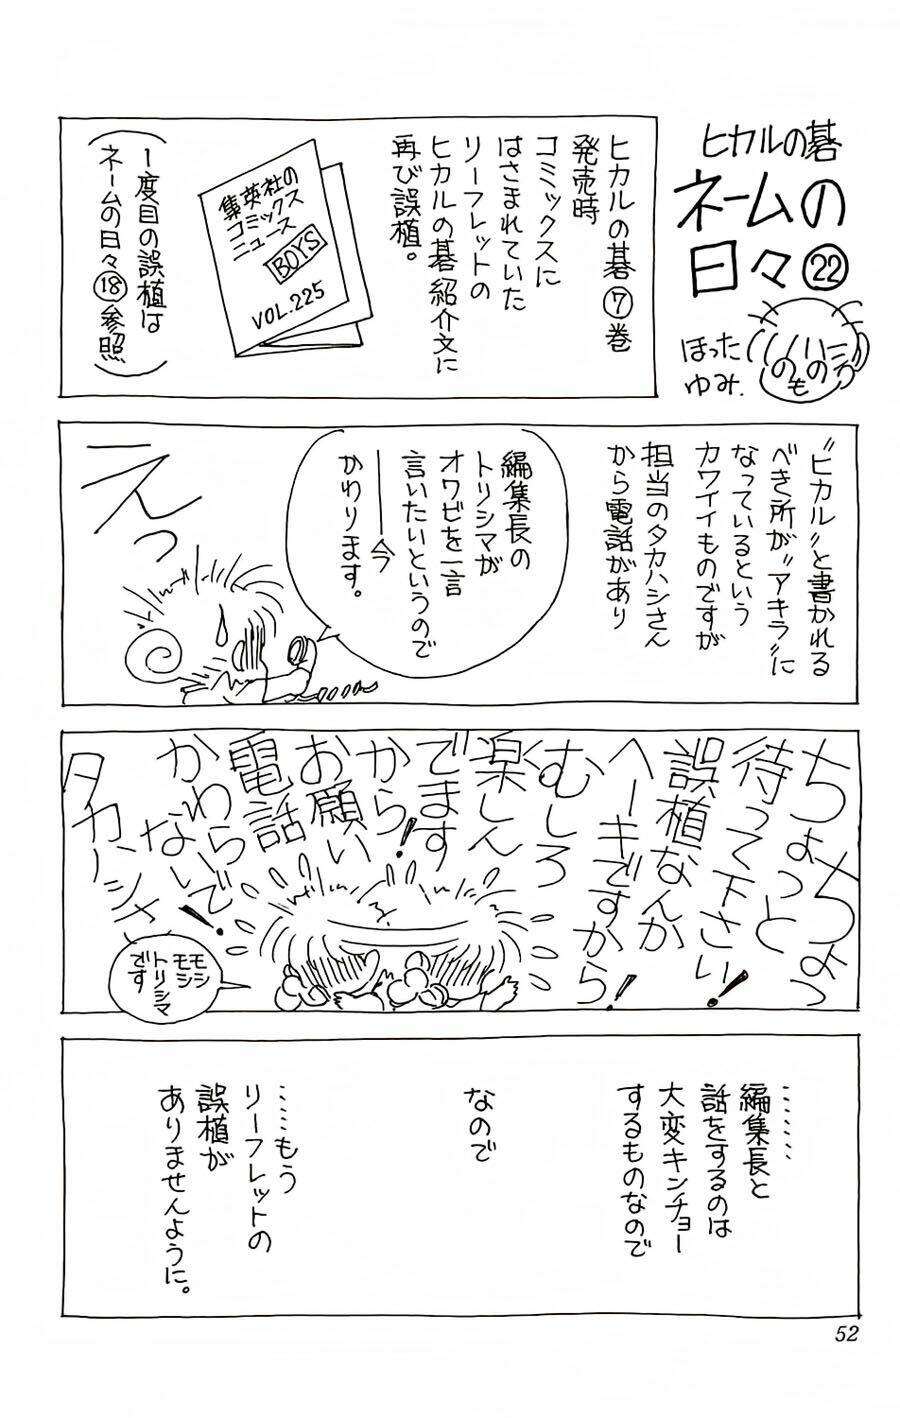 ヒカルの碁
ネームの
日々㉒
ほった
ゆみ.
ヒカルの碁⑦巻
発売時
コミックスに
はさまれていた
リーフレットの
ヒカルの碁紹介文に
再び誤植。
集英社の
コミックス
ニュース
BOYS
VOL.225
(1度目の誤植は
ネームの日々⑱参照)
"ヒカル"と書かれる
べき所が"アキラ"に
なっているという
カワイイものですが
担当のタカハシさん
から電話があり
編集長の
トリシマが
オワビを一言
言いたいというので
――今
かわります。
えっ
ちょちょ
ちょっと
待って下さい!
誤植なんか
ヘーキですから!
むしろ
楽しん
でます
から!
お願い
電話
かわらないで!
タカハシさ
モシ
モシ
トリシマ
です
……
編集長と
話をするのは
大変キンチョー
するものなので
なので
……もう
リーフレットの
誤植が
ありませんように。
52